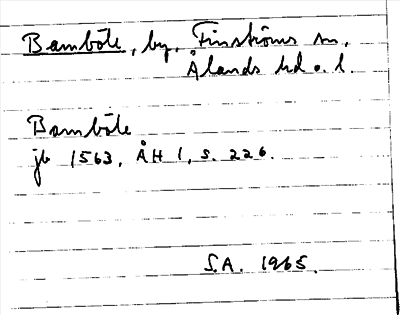 Bamböle, by, Finströms sn,
Ålands hd o. l.
Bamböle
jb 1563, ÅH 1, s. 226.
S.A. 1965.